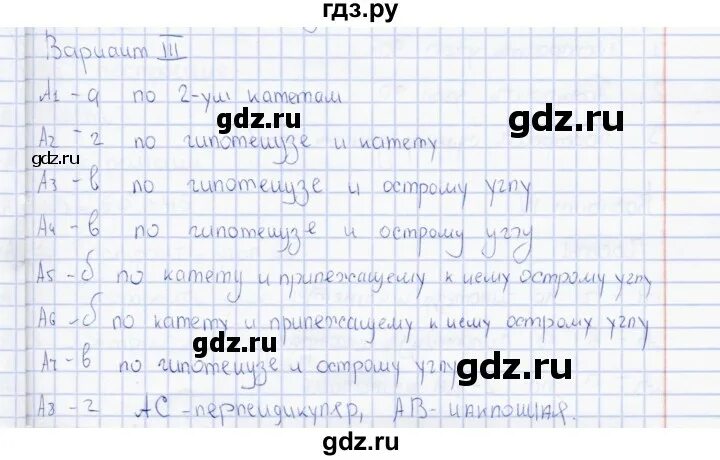 гдз.ру
Вариант III
А1 - а по 2-ум катетам
gdz.ru
gdz.ru
А2 - г по гипотенузе и катету
gdz.ru
А3 - в по гипотенузе и острому углу
А4 - в по гипотенузе и острому углу
А5 - б по катету и прилежащему к нему острому углу
А6 - б по катету и прилежащему к нему острому углу
gdz.ru
А7 - в по гипотенузе и острому углу
gdz.ru
А8 - г АС - перпендикуляр, АВ - наклонная.
gdz.ru